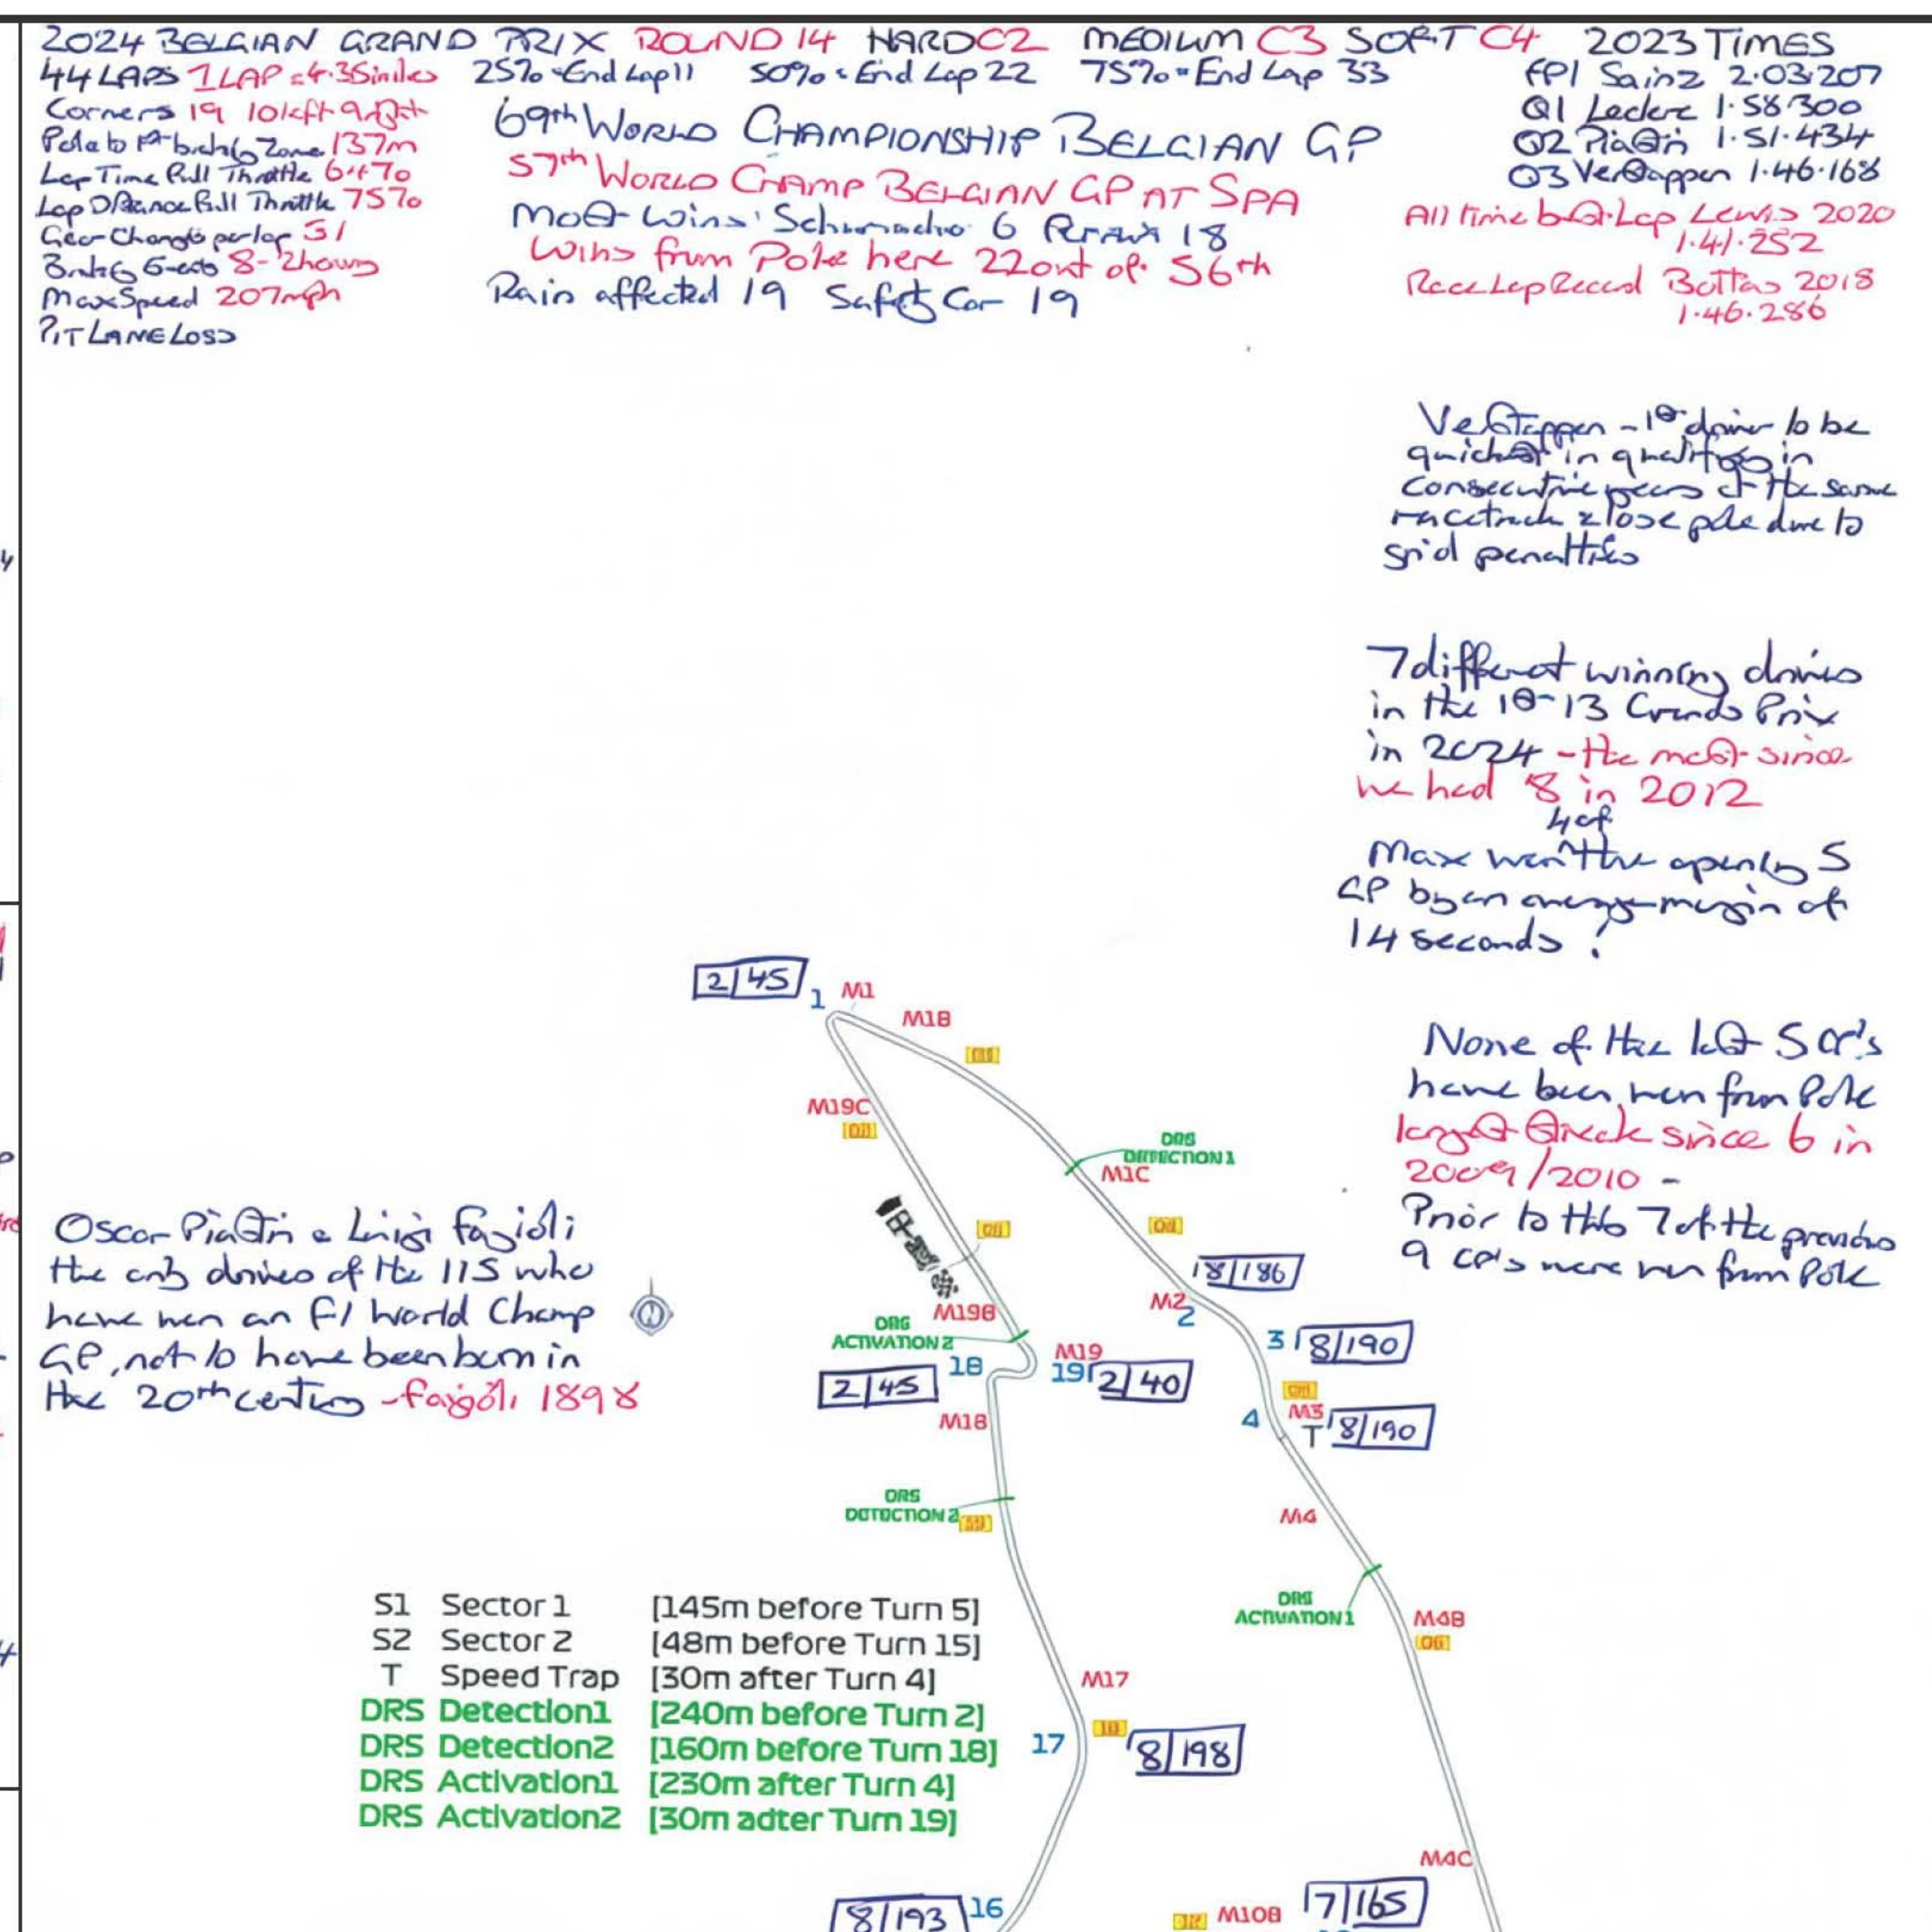 2024 BELGIAN GRAND PRIX ROUND 14 HARD C2 MEDIUM C3 SOFT C4
44 LAPS 1 LAP = 4.35 miles 25% = End Lap 11 50% = End Lap 22 75% = End Lap 33
Corners 19 10 left 9 right
Pole to 1st braking Zone 137m
Lap Time Full Throttle
Lap Distance Full Throttle 75%
Gear Changes per lap 51
Braking G-
Max Speed 207mph
PIT LANE LOSS
69th WORLD CHAMPIONSHIP BELGIAN GP
57th WORLD CHAMP BELGIAN GP AT SPA
Most Wins: Schumacher 6 Ferrari 18
Wins from Pole here 22 out of 56th
Rain affected 19 Safety Car 19
2023 TIMES
FP1 Sainz 2.03.207
Q1 Leclerc 1.58.300
Q2 Piastri 1.51.434
Q3 Verstappen 1.46.168
All time best Lap Lewis 2020
1.41.252
Race Lap Record Bottas 2018
1.46.286
Verstappen - 1st driver to be
quickest in qualifying in
consecutive years at the same
racetrack & lose pole due to
grid penalties
7 different winning drivers
in the 1st 13 Grands Prix
in 2024 - the most since
we had 8 in 2012
4 of
Max won the opening 5
GP by an average margin of
14 seconds!
None of the last 5 GP's
have been won from Pole
longest streak since 6 in
2009/2010 -
Prior to this 7 of the previous
9 GP's were won from Pole
Oscar Piastri & Luigi Fagioli
the only drivers of the 115 who
have won an F1 World Champ
GP, not to have been born in
the 20th century - Fagioli 1898
2/45
1 M1
M1B
M19C
DRS
DETECTION 1
M1C
8/186
M2
2
3 8/190
M19B
DRS
ACTIVATION 2
18
M19
19 2/40
2/45
M18
4
M3
T 8/190
DRS
DETECTION 2
M4
DRS
ACTIVATION 1
M4B
06
S1 Sector 1 [145m before Turn 5]
S2 Sector 2 [48m before Turn 15]
T Speed Trap [30m after Turn 4]
DRS Detection1 [240m before Turn 2]
DRS Detection2 [160m before Turn 18]
DRS Activation1 [230m after Turn 4]
DRS Activation2 [30m adter Turn 19]
M17
17
8/198
M4C
8/193 16
M10B
7/165